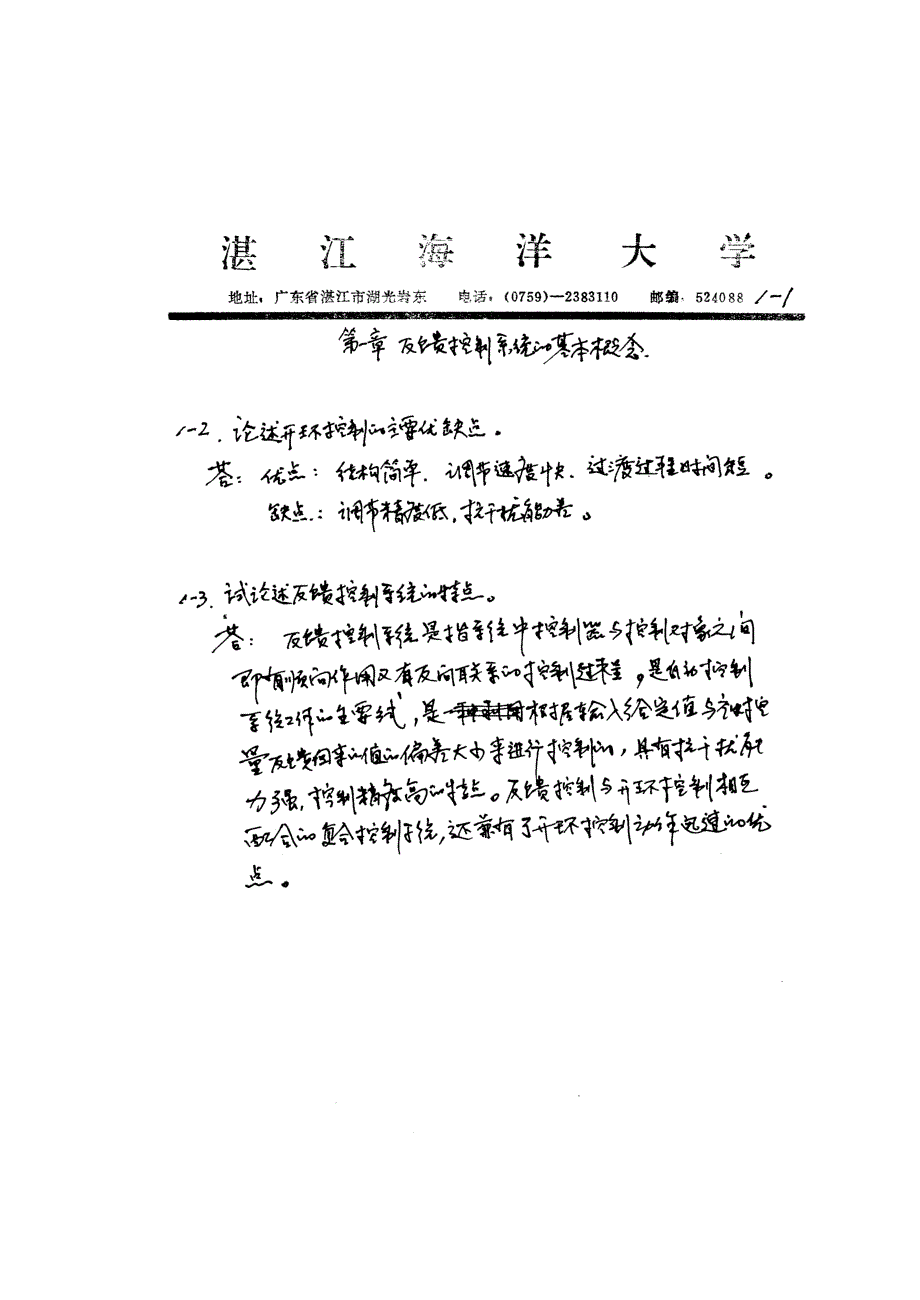 湛江海洋大学
地址：广东省湛江市湖光岩东 电话：(0759)—2383110 邮编：524088 1-1
第一章 反馈控制系统的基本概念.
1-2. 论述开环控制的主要优缺点。
答：优点：结构简单．调节速度快、过渡过程时间短。
缺点：调节精度低，抗干扰能力差。
1-3. 试论述反馈控制系统的特点。
答：反馈控制系统是指系统中控制器与控制对象之间
即有顺向作用又有反向联系的控制过程。是自动控制
系统工作的主要式，是根据输入给定值与
量反馈回来的值的偏差大小来进行控制的，具有抗干扰能
力强，控制精度高的特点。反馈控制与开环控制相互
配合的复合控制系统，还兼有了开环控制动作迅速的优
点。